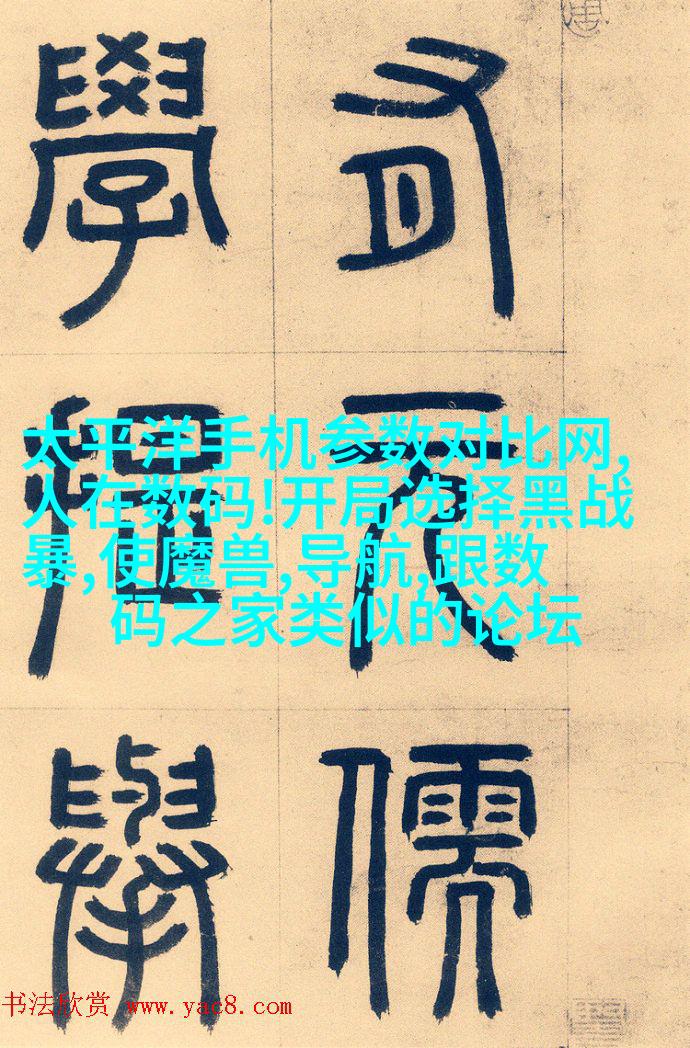 有元儒
學提舉
太平洋手机参数对比网,
人在数码!开局选择黑战
暴,使魔兽,导航,跟数
码之家类似的论坛
书法欣赏 www.yac8.com